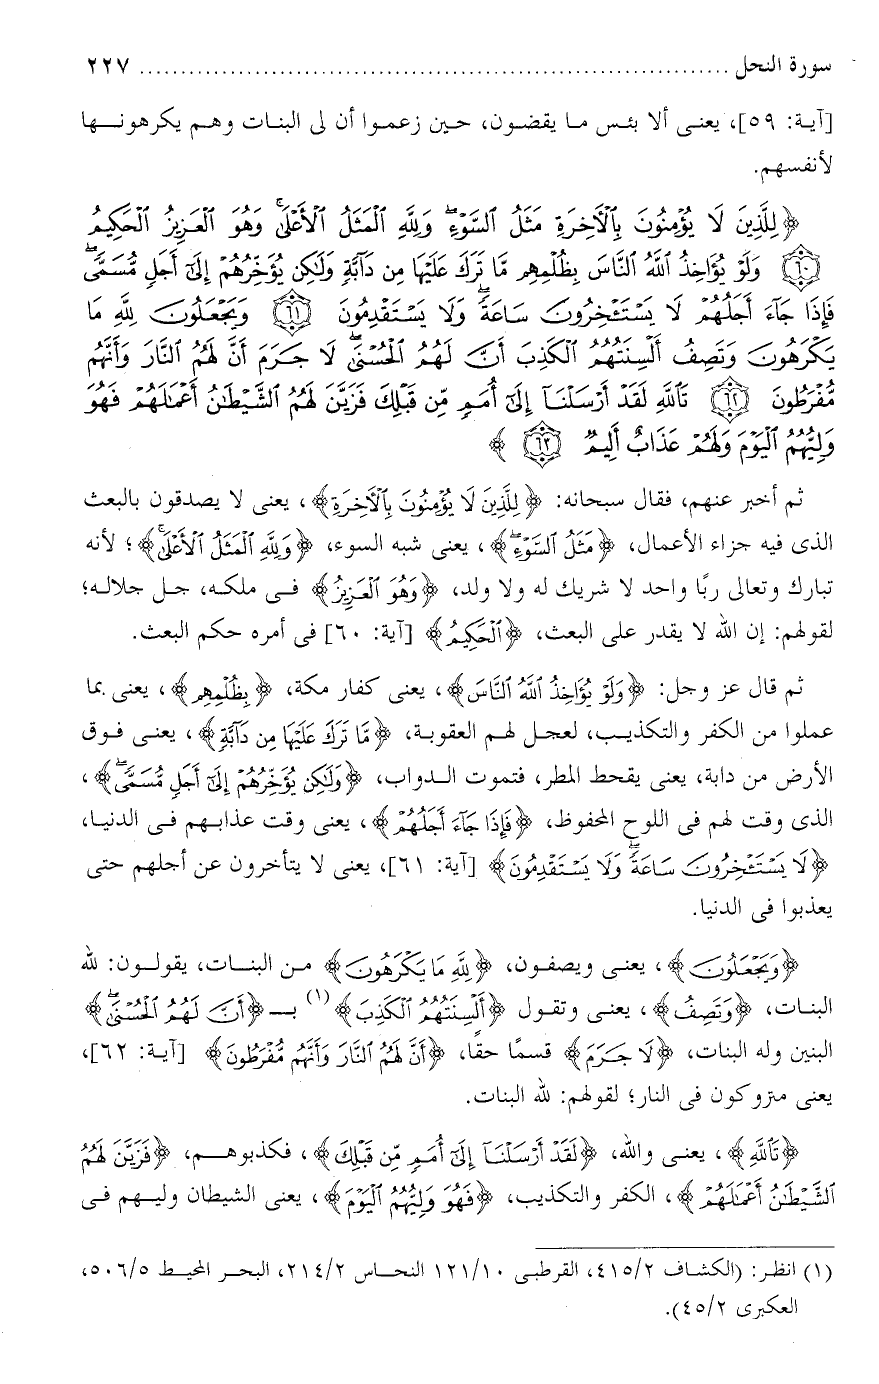 سورة النحل ........................................................................ ٢٢٧
[آية: ٥٩]، يعنى ألا بئس ما يقضون، حين زعموا أن لى البنات وهم يكرهونها
لأنفسهم.
﴿لِلَّذِينَ لَا يُؤْمِنُونَ بِالْآخِرَةِ مَثَلُ السَّوْءِ ۖ وَلِلَّهِ الْمَثَلُ الْأَعْلَىٰ ۚ وَهُوَ الْعَزِيزُ الْحَكِيمُ
۝٦٠ وَلَوْ يُؤَاخِذُ اللَّهُ النَّاسَ بِظُلْمِهِم مَّا تَرَكَ عَلَيْهَا مِن دَابَّةٍ وَلَٰكِن يُؤَخِّرُهُمْ إِلَىٰ أَجَلٍ مُّسَمًّى ۖ
فَإِذَا جَاءَ أَجَلُهُمْ لَا يَسْتَأْخِرُونَ سَاعَةً ۖ وَلَا يَسْتَقْدِمُونَ ۝٦١ وَيَجْعَلُونَ لِلَّهِ مَا
يَكْرَهُونَ وَتَصِفُ أَلْسِنَتُهُمُ الْكَذِبَ أَنَّ لَهُمُ الْحُسْنَىٰ ۖ لَا جَرَمَ أَنَّ لَهُمُ النَّارَ وَأَنَّهُم
مُّفْرَطُونَ ۝٦٢ تَاللَّهِ لَقَدْ أَرْسَلْنَا إِلَىٰ أُمَمٍ مِّن قَبْلِكَ فَزَيَّنَ لَهُمُ الشَّيْطَانُ أَعْمَالَهُمْ فَهُوَ
وَلِيُّهُمُ الْيَوْمَ وَلَهُمْ عَذَابٌ أَلِيمٌ ۝٦٣ ﴾
ثم أخبر عنهم، فقال سبحانه: ﴿لِلَّذِينَ لَا يُؤْمِنُونَ بِالْآخِرَةِ﴾، يعنى لا يصدقون بالبعث
الذى فيه جزاء الأعمال، ﴿مَثَلُ السَّوْءِ ۖ﴾، يعنى شبه السوء، ﴿وَلِلَّهِ الْمَثَلُ الْأَعْلَىٰ ۚ﴾؛ لأنه
تبارك وتعالى ربًا واحد لا شريك له ولا ولد، ﴿وَهُوَ الْعَزِيزُ﴾ فى ملكه، جل جلاله؛
لقولهم: إن الله لا يقدر على البعث، ﴿الْحَكِيمُ﴾ [آية: ٦٠] فى أمره حكم البعث.
ثم قال عز وجل: ﴿وَلَوْ يُؤَاخِذُ اللَّهُ النَّاسَ﴾، يعنى كفار مكة، ﴿بِظُلْمِهِم﴾، يعنى بما
عملوا من الكفر والتكذيب، لعجل لهم العقوبة، ﴿مَّا تَرَكَ عَلَيْهَا مِن دَابَّةٍ﴾، يعنى فوق
الأرض من دابة، يعنى يقحط المطر، فتموت الدواب، ﴿وَلَٰكِن يُؤَخِّرُهُمْ إِلَىٰ أَجَلٍ مُّسَمًّى ۖ﴾،
الذى وقت لهم فى اللوح المحفوظ، ﴿فَإِذَا جَاءَ أَجَلُهُمْ﴾، يعنى وقت عذابهم فى الدنيا،
﴿لَا يَسْتَأْخِرُونَ سَاعَةً ۖ وَلَا يَسْتَقْدِمُونَ﴾ [آية: ٦١]، يعنى لا يتأخرون عن أجلهم حتى
يعذبوا فى الدنيا.
﴿وَيَجْعَلُونَ﴾، يعنى ويصفون، ﴿لِلَّهِ مَا يَكْرَهُونَ﴾ من البنات، يقولون: لله
البنات، ﴿وَتَصِفُ﴾، يعنى وتقول ﴿أَلْسِنَتُهُمُ الْكَذِبَ﴾(١) بـ﴿أَنَّ لَهُمُ الْحُسْنَىٰ ۖ﴾
البنين وله البنات، ﴿لَا جَرَمَ﴾ قسمًا حقًا، ﴿أَنَّ لَهُمُ النَّارَ وَأَنَّهُم مُّفْرَطُونَ﴾ [آية: ٦٢]،
يعنى متروكون فى النار؛ لقولهم: لله البنات.
﴿تَاللَّهِ﴾، يعنى والله، ﴿لَقَدْ أَرْسَلْنَا إِلَىٰ أُمَمٍ مِّن قَبْلِكَ﴾، فكذبوهم، ﴿فَزَيَّنَ لَهُمُ
الشَّيْطَانُ أَعْمَالَهُمْ﴾، الكفر والتكذيب، ﴿فَهُوَ وَلِيُّهُمُ الْيَوْمَ﴾، يعنى الشيطان وليهم فى
(١) انظر: (الكشاف ٤١٥/٢، القرطبى ١٢١/١٠ النحاس ٢١٤/٢، البحر المحيط ٥٠٦/٥،
العكبرى ٤٥/٢).